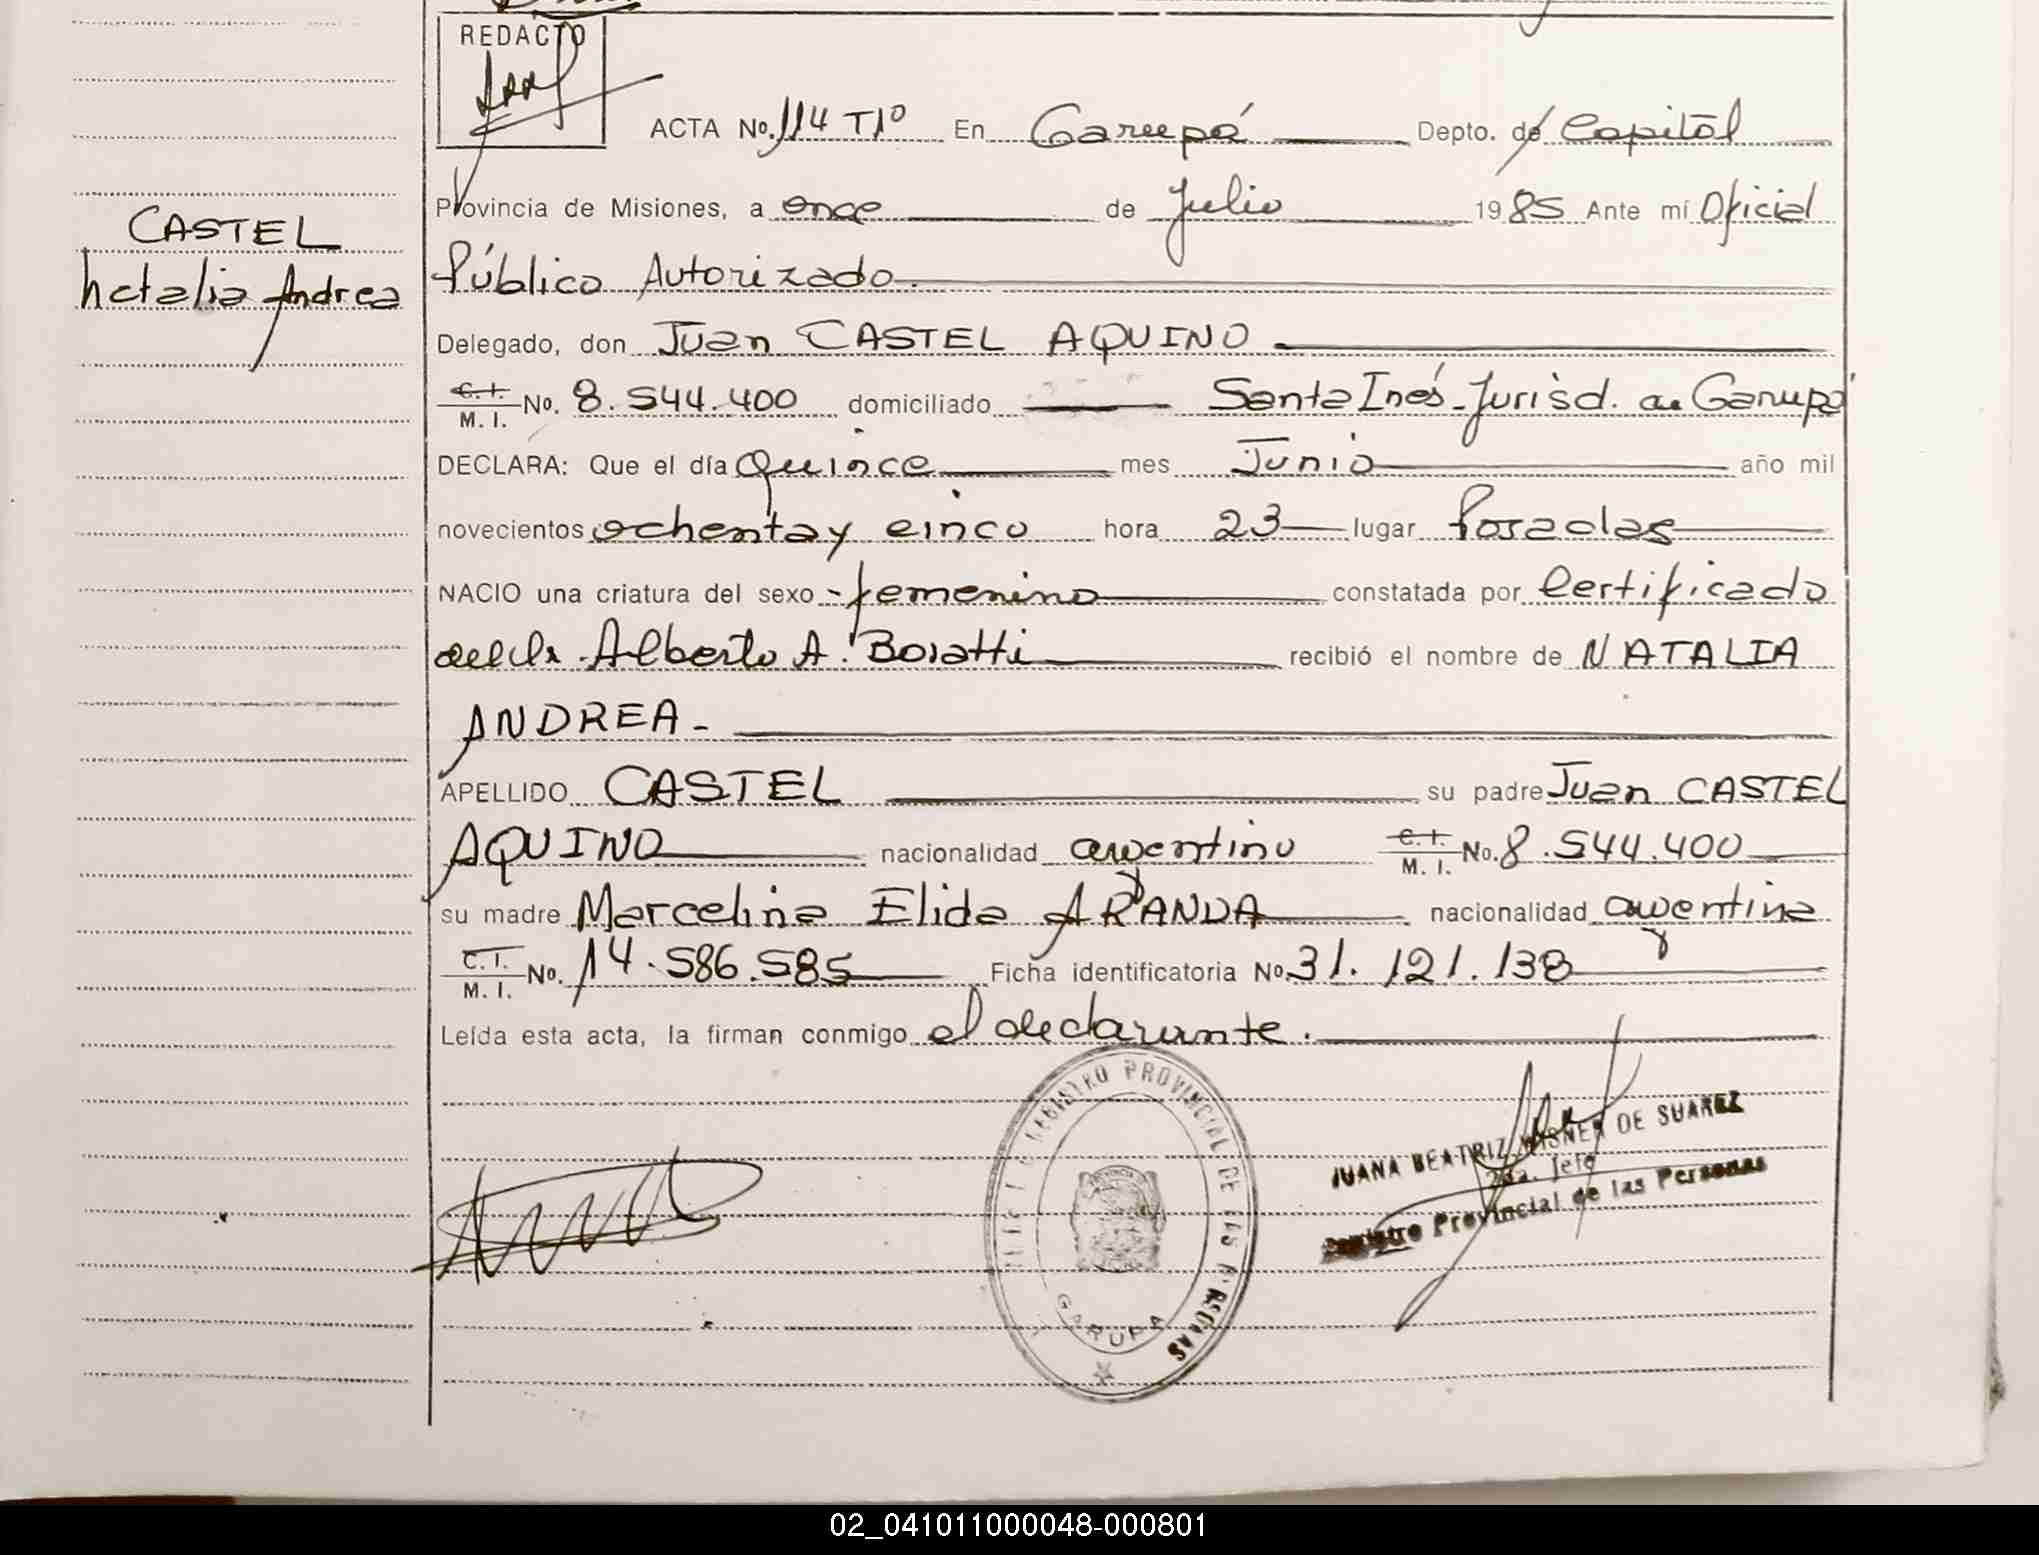 REDACTO
ACTA No. 114 T1º En Garupá Depto. de Capital
CASTEL
Natalia Andrea
Provincia de Misiones, a once de Julio 1985 Ante mí Oficial
Público Autorizado.
Delegado, don Juan CASTEL AQUINO
C.I. M.I. No. 8.544.400 domiciliado Santa Inés - Jurisd. de Garupá
DECLARA: Que el día Quince mes Junio año mil
novecientos ochenta y cinco hora 23 lugar Posadas
NACIO una criatura del sexo - femenino constatada por Certificado
del Dr. Alberto A. Boiatti recibió el nombre de NATALIA
ANDREA -
APELLIDO CASTEL su padre Juan CASTEL
AQUINO nacionalidad argentino C.I. M.I. No. 8.544.400
su madre Marcelina Elida ARANDA nacionalidad argentina
C.I. M.I. No. 14.586.585 Ficha identificatoria No. 31.121.138
Leída esta acta, la firman conmigo el declarante.
REGISTRO PROVINCIAL DE LAS PERSONAS
GARUPA
JUANA BEATRIZ WISNER DE SUAREZ
Jefe
Registro Provincial de las Personas
02_041011000048-000801